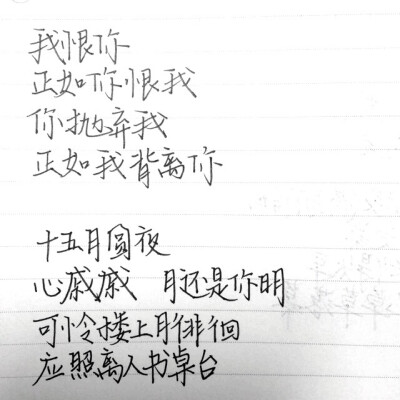 我恨你
正如你恨我
你抛弃我
正如我背离你
十五月圆夜
心戚戚 月还是你明
可怜楼上月徘徊
应照离人书桌台